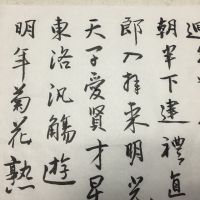 朝半下建禮直
郎入拜明光
天子愛賢才早
東洛汎觴遊
明年菊花熟